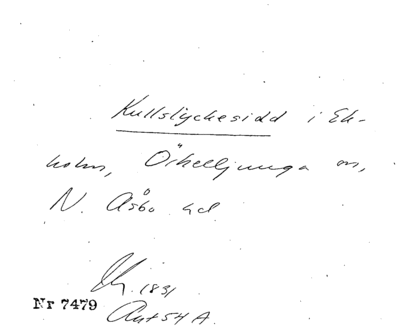 Kullslyckesidd i Ek-
holm, Örkelljunga sn,
N. Åsbo hd
1831
Nr 7479
Ant 54 A.